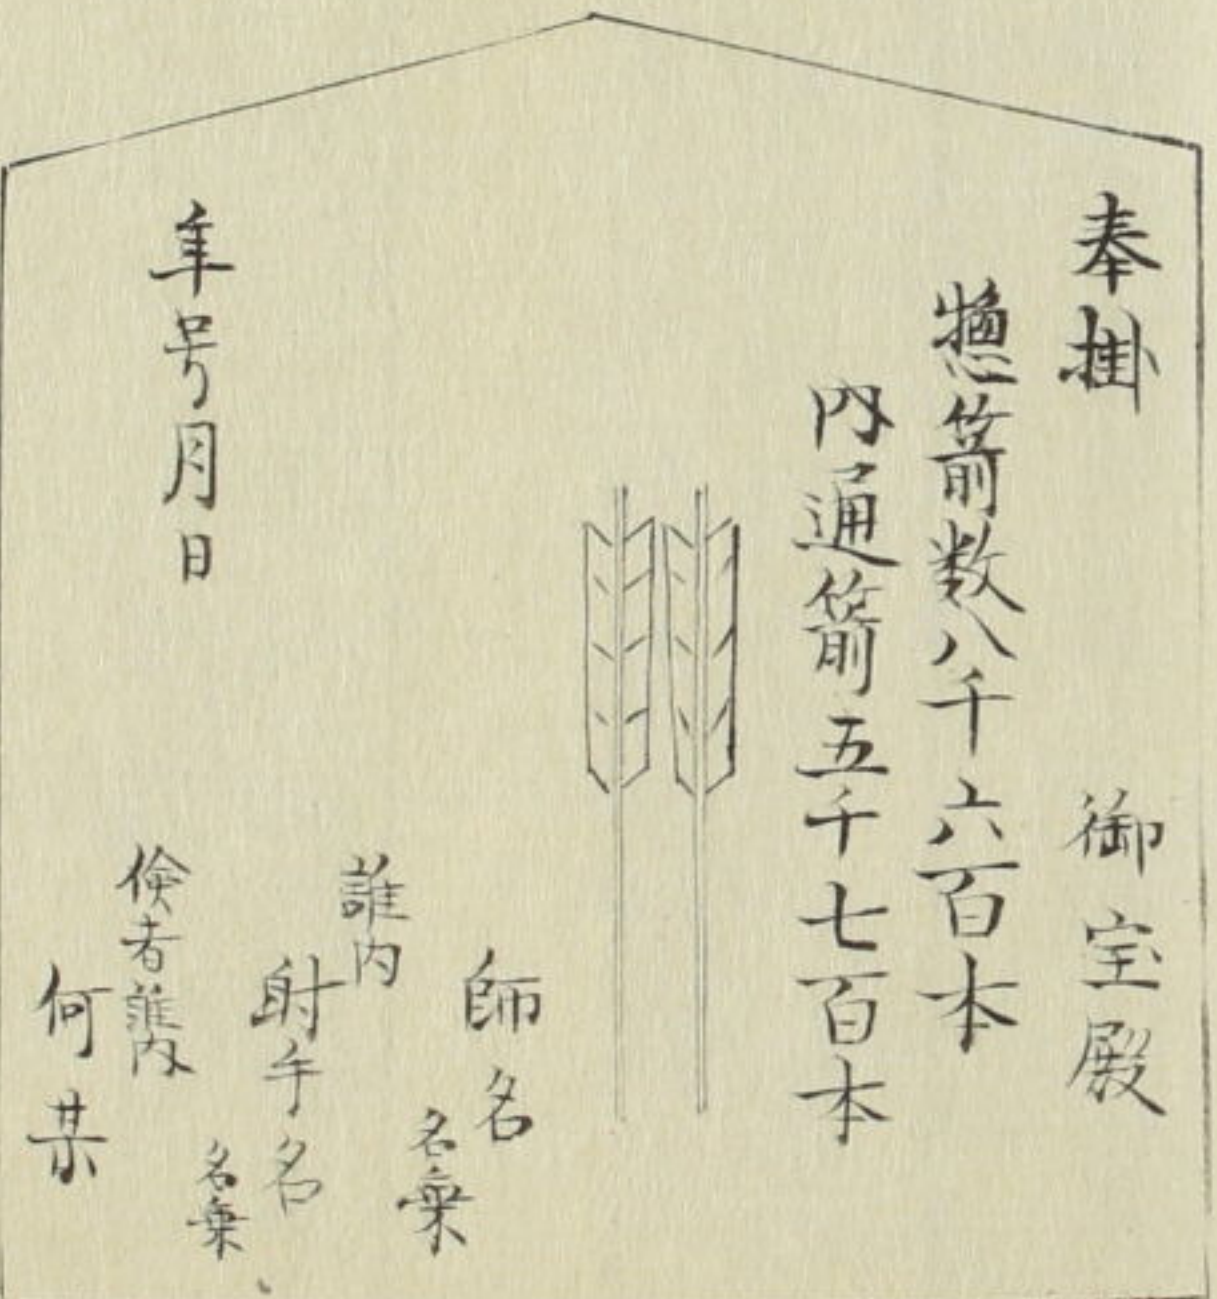 奉掛　御宝殿
惣箭数八千六百本
内通箭五千七百本
師名
名乗
誰内
射手名
名乗
倹者誰内
何某
年号月日